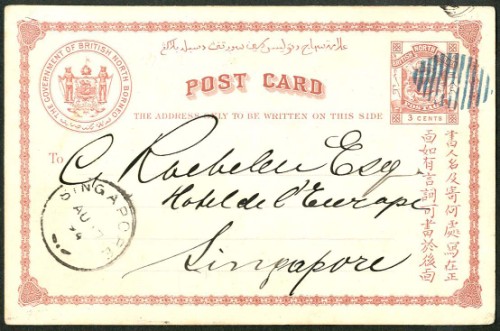 THE GOVERNMENT OF BRITISH NORTH BORNEO
POST CARD
THE ADDRESS ONLY TO BE WRITTEN ON THIS SIDE
BRITISH NORTH
3 CENTS
To
C. Roebelen Esq.
Hotel de l'Europe
Singapore
SINGAPORE
AU
書人名及寄何處寫在正
面如有言詞可書於後面